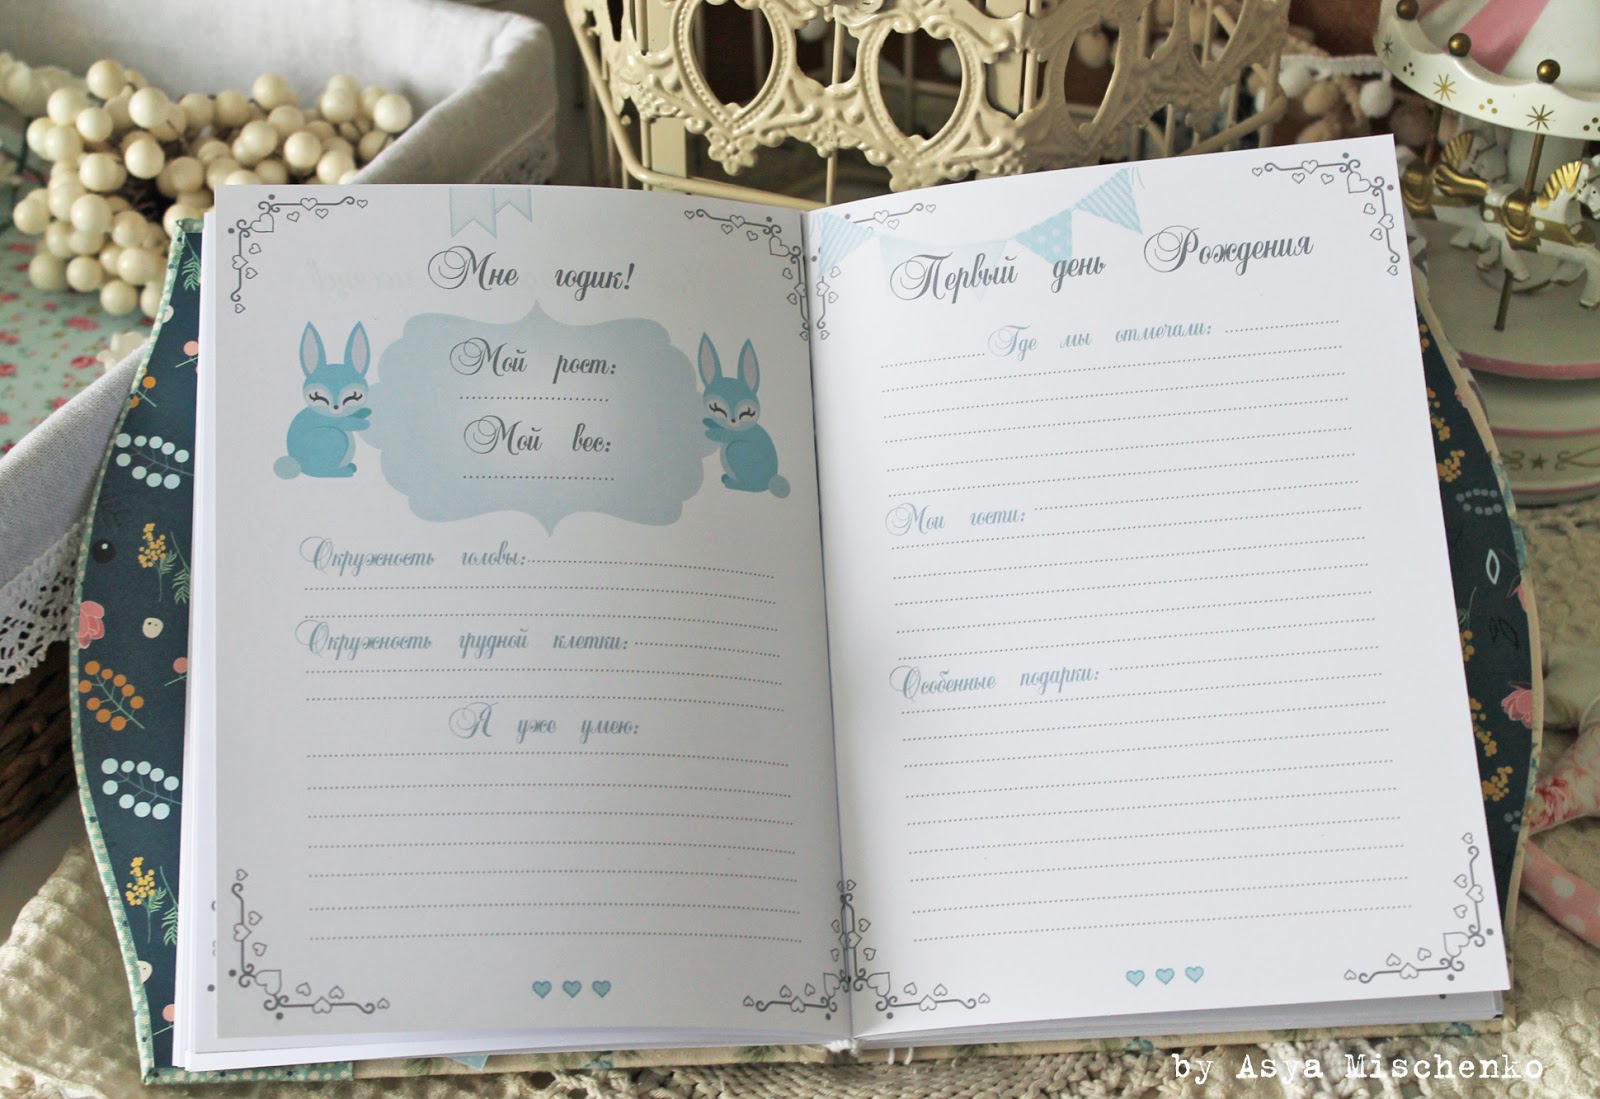 Мне годик!
Мой рост:
Мой вес:
Окружность головы:
Окружность грудной клетки:
Я уже умею:
Первый день Рождения
Где мы отмечали:
Мои гости:
Особенные подарки:
by Asya Mischenko